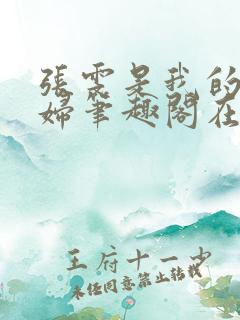 張雲是我的
婦筆趣閣在
王府十一少
未經同意禁止轉載